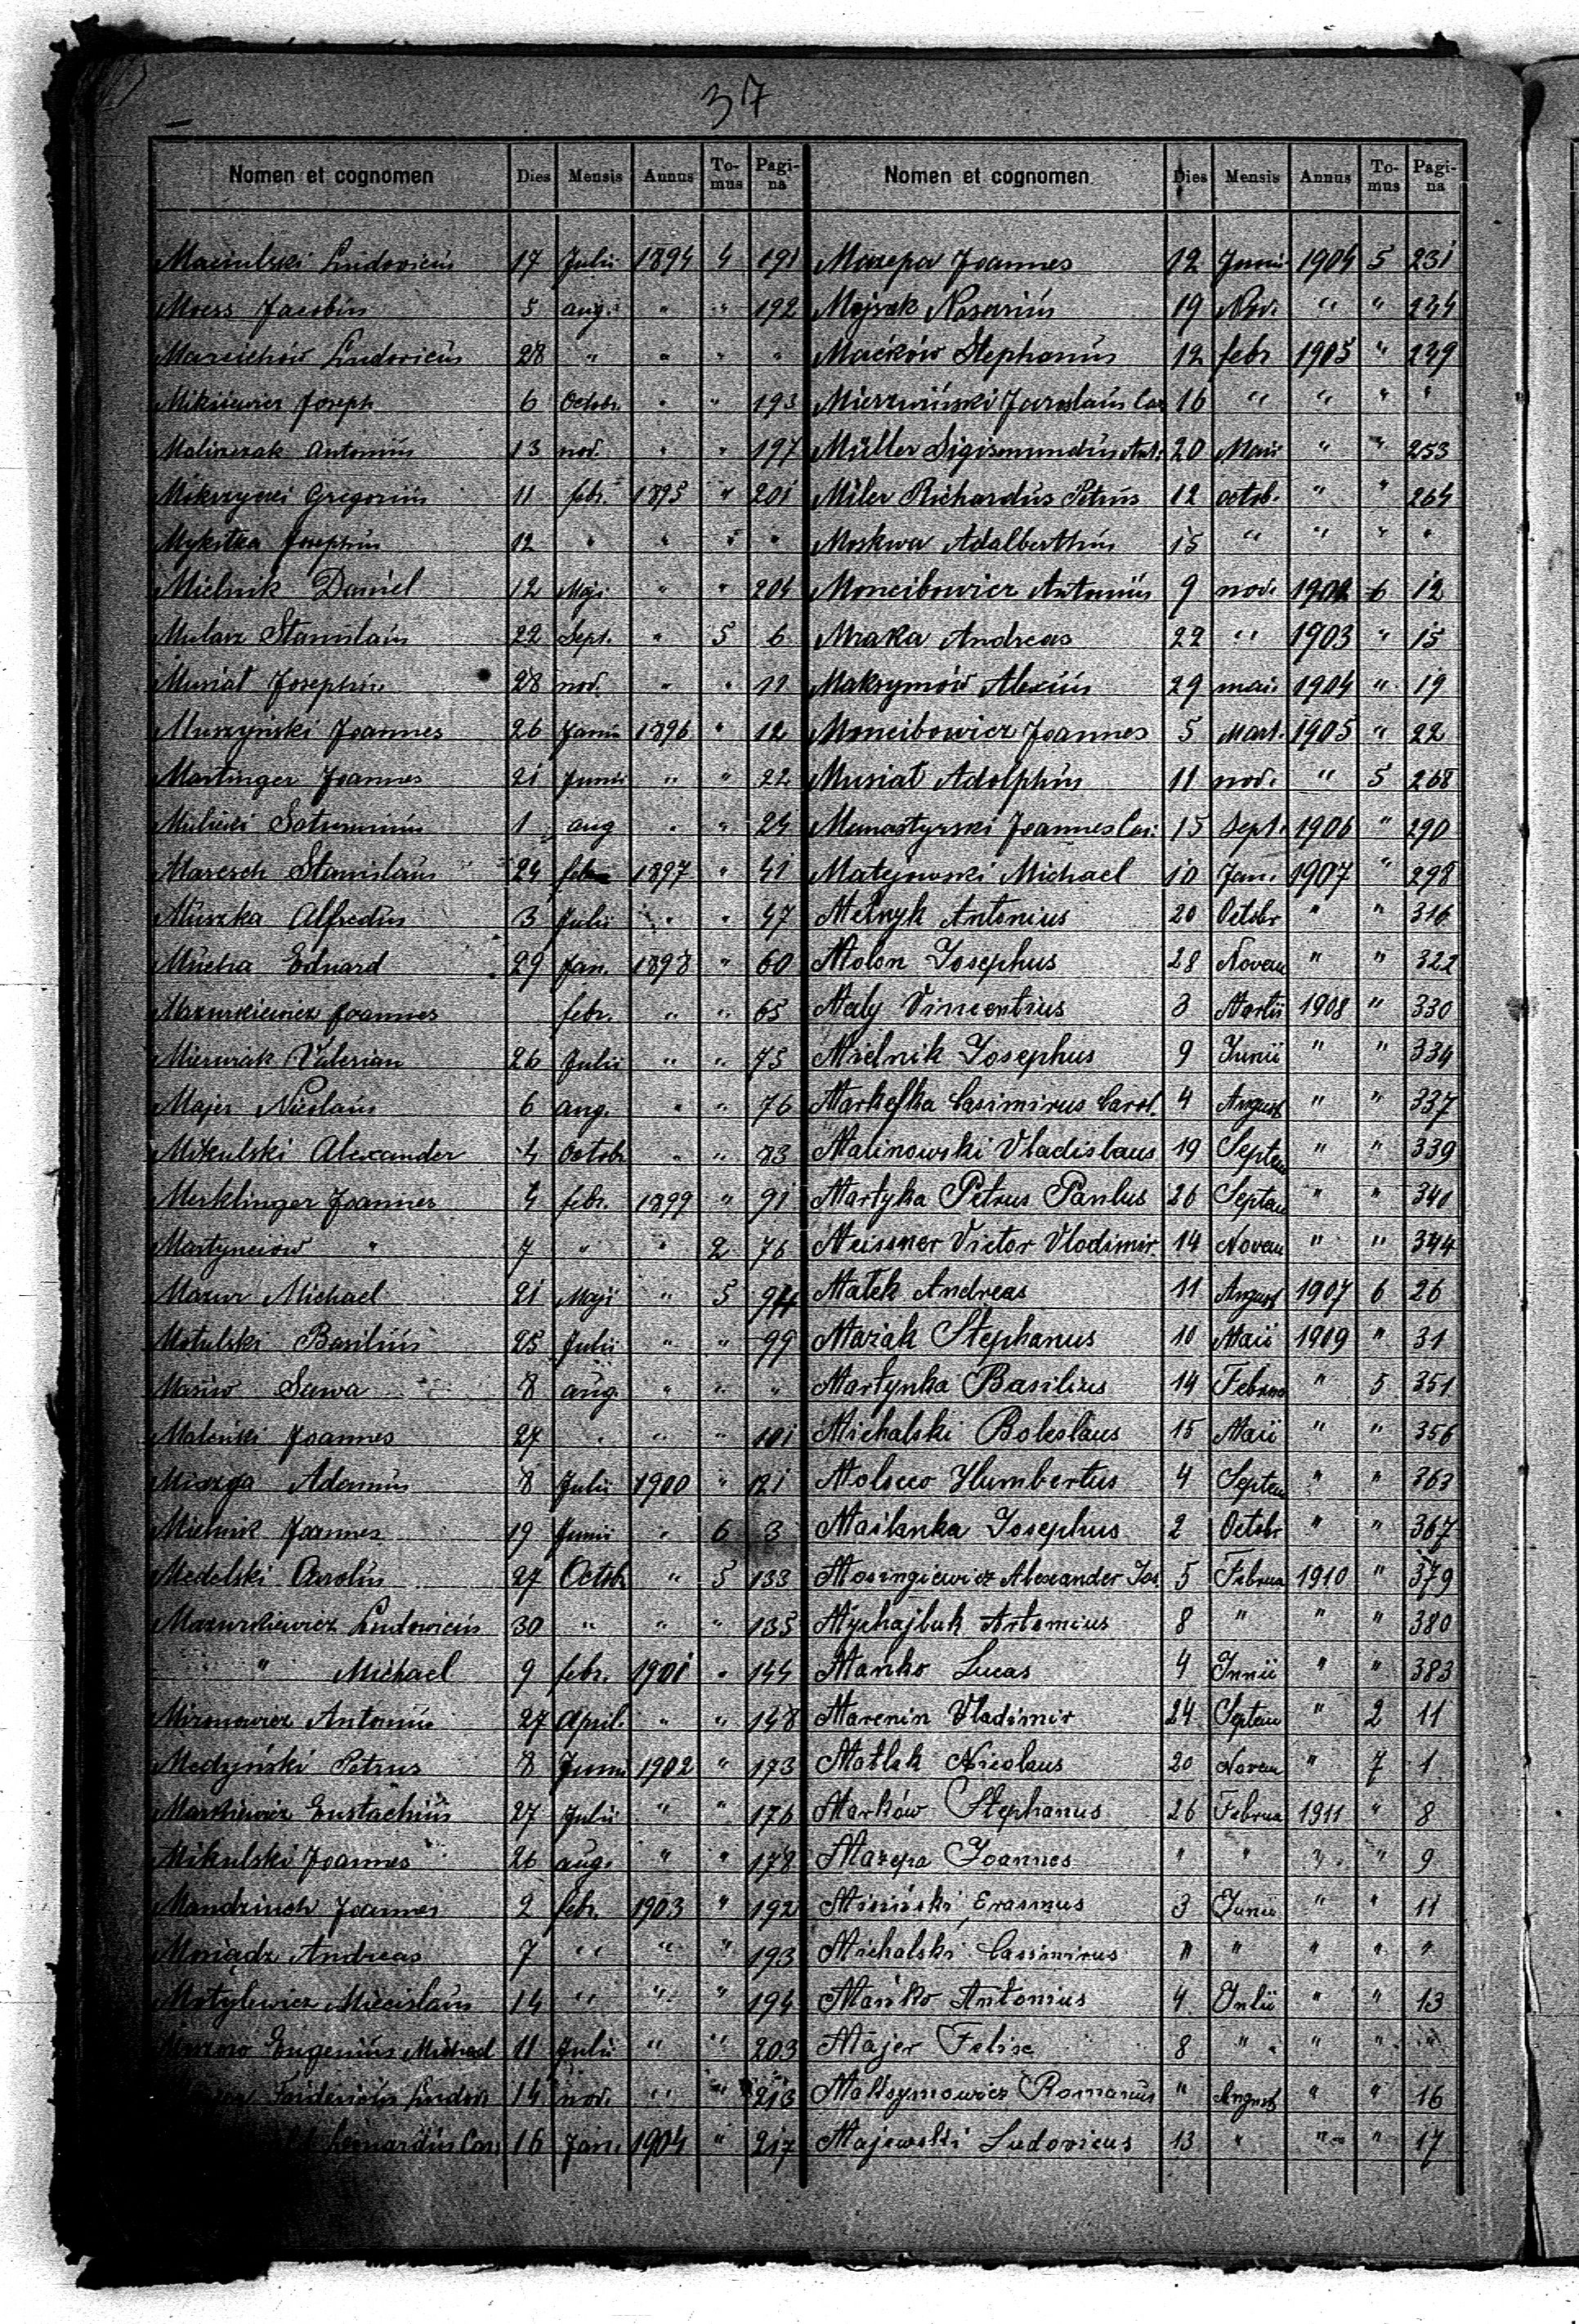 37
Nomen et cognomen Dies Mensis Annus To-mus Pagi-na
Maciulski Ludovicus 17 Julii 1894 4 191
Moess Jacobus 5 aug. " " 192
Mareichów Ludovicus 28 " " " "
Mikiewicz Joseph 6 Octob. " " 193
Maliszczak Antonius 13 nov. " " 197
Mokrzycki Gregorius 11 febr. 1895 " 201
Mykitka Josephus 12 " " " "
Mielnik Daniel 12 Maji " " 204
Mularz Stanislaus 22 Sept. " 5 6
Musiał Josephus 28 nov. " " 11
Muszyński Joannes 26 Janu 1896 " 12
Martinger Joannes 21 Junii " " 22
Milnicki Saturninus 1 aug " " 24
Maresch Stanislaus 24 febr 1897 " 41
Muszka Alfredus 3 Julii " " 47
Mucha Eduard 29 Jan. 1898 " 60
Mazurkiewicz Joannes febr. " " 65
Mierniak Valerian 26 Julii " " 75
Majer Nicolaus 6 aug. " " 76
Mikulski Alexander 4 Octob " " 83
Merklinger Joannes 4 febr. 1899 " 91
Martynciów " 7 " " 2 76
Mazur Michael 21 Maji " 5 94
Motulski Basilius 25 Julii " " 99
Masiw Sawa 8 aug. " " "
Maleński Joannes 27 " " " 101
Miazga Adamus 8 Julii 1900 " 121
Mielnik Joannes 19 Junii " 6 3
Medelski Carolus 27 Octob " 5 133
Mazurkiewicz Ludovicus 30 " " " 135
" Michael 9 febr. 1901 " 144
Mironowicz Antonius 27 April. " " 148
Medyński Petrus 8 Junii 1902 " 173
Markiewicz Eustachius 27 Julii " " 176
Mikulski Joannes 26 aug. " " 178
Mandziuch Joannes 2 febr. 1903 " 192
Moniądz Andreas 7 " " " 193
Motylewicz Miecislaus 14 " " " 194
Eugenius Michael 11 Julii " " 203
Ludov 14 nov. " " 213
Leonardus Cas. 16 Jan. 1904 " 217
Nomen et cognomen Dies Mensis Annus To-mus Pagi-na
Mazepa Joannes 12 Junii 1904 5 231
Mojsak Nasarius 19 Nov. " " 234
Maćków Stephanus 12 febr 1905 " 239
Mierzwiński Jaroslaus Cas 16 " " " "
Müller Sigismundus Ant. 20 Maii " " 253
Miler Richardus Petrus 12 octob. " " 264
Moskwa Adalberthus 15 " " " "
Moncibowicz Antonius 9 nov. 1902 6 12
Mraka Andreas 22 " 1903 " 15
Maksymów Alexius 29 maii 1904 " 19
Moncibowicz Joannes 5 Mart. 1905 " 22
Musiał Adolphus 11 nov. " 5 268
Monastyrski Joannes Cas: 15 Sept. 1906 " 290
Matejowski Michael 10 Jan. 1907 " 298
Melnyk Antonius 20 Octobr " " 316
Molon Josephus 28 Novem " " 322
Mały Vincentius 3 Martii 1908 " 330
Mielnik Josephus 9 Junii " " 334
Markefka Casimirus Carol. 4 August " " 337
Malinowski Vladislaus 19 Septem " " 339
Martyka Petrus Paulus 26 Septem " " 340
Meissner Victor Vlodimir 14 Novem " " 344
Małek Andreas 11 August 1907 6 26
Mazak Stephanus 10 Maii 1909 " 31
Martynka Basilius 14 Februa " 5 351
Michalski Boleslaus 15 Maii " " 356
Molocco Humbertus 4 Septem " " 363
Maślanka Josephus 2 Octobr " " 367
Mosingiewicz Alexander Jos. 5 Februa 1910 " 379
Mychajluk Artemius 8 " " " 380
Mańko Lucas 4 Junii " " 383
Marenin Vladimir 24 Septem " 2 11
Motlak Nicolaus 20 Novem " 7 1
Marków Stephanus 26 Februa 1911 " 8
Mazepa Joannes " " " " 9
Misiński Erasmus 3 Junii " " 11
Michalski Cassimirus " " " " "
Mańko Antonius 4 Julii " " 13
Majer Felix 8 " " " "
Maksymowicz Romanus " August " " 16
Majewski Ludovicus 13 " " " 17